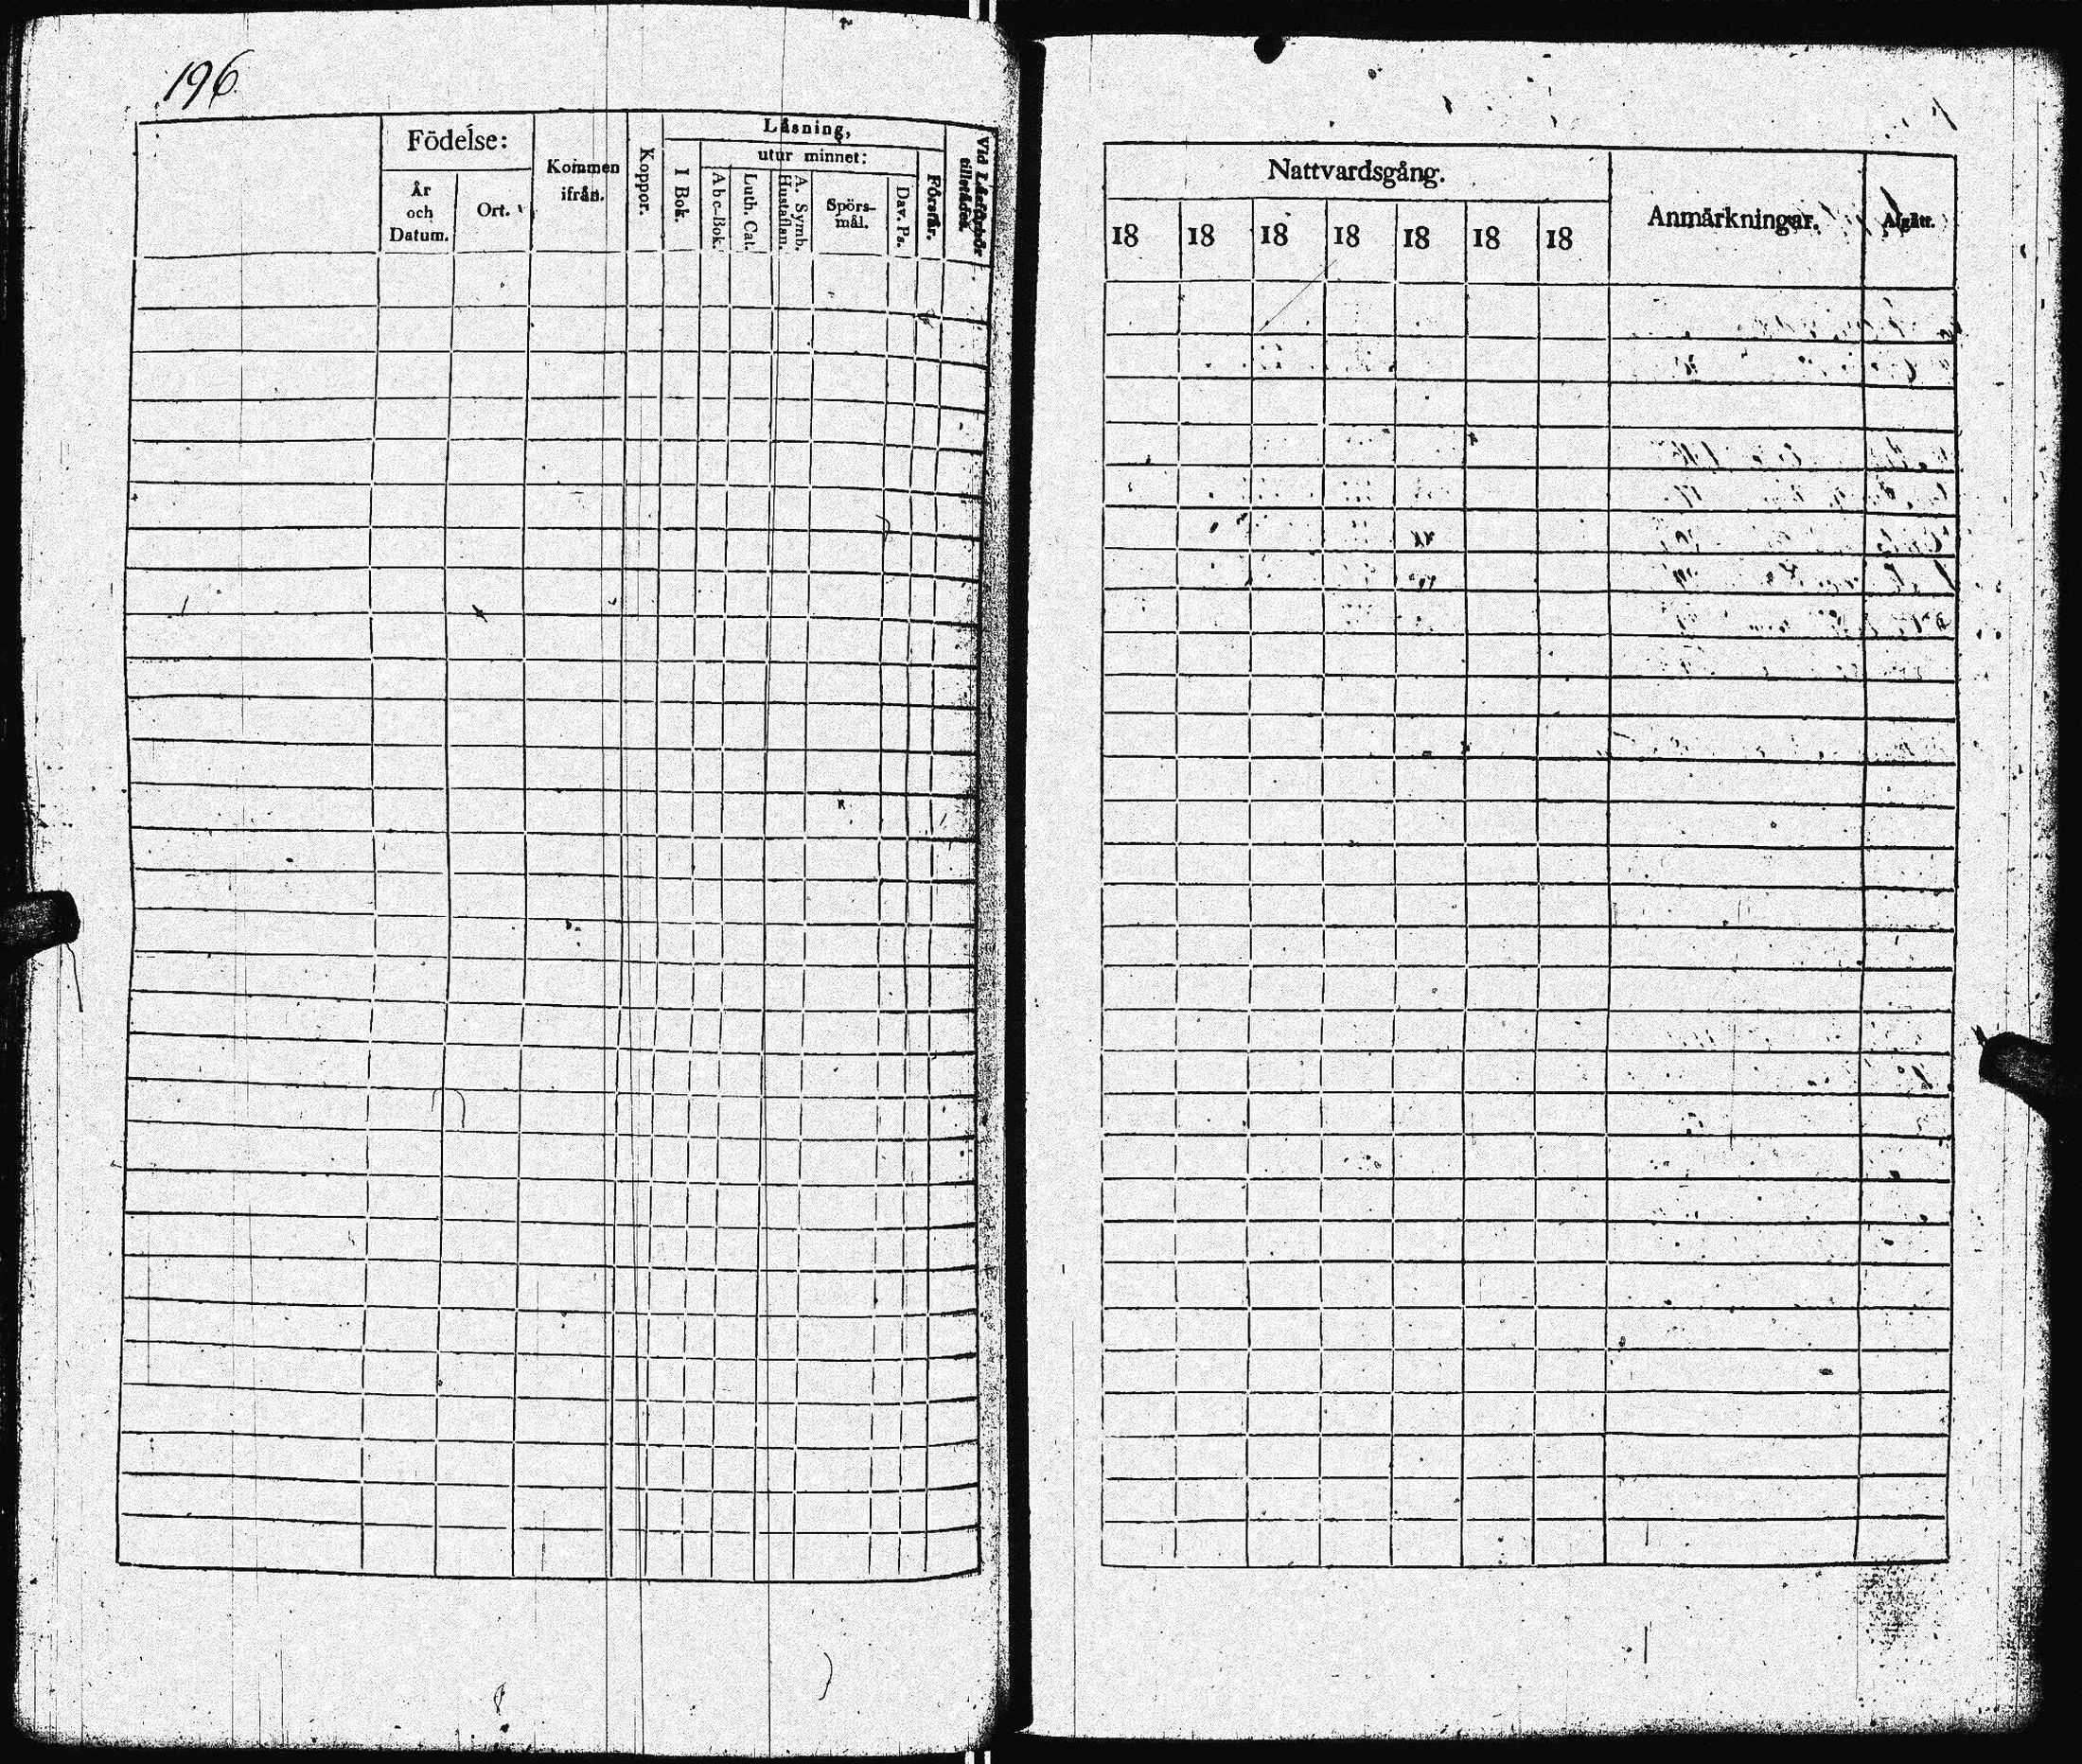 196
Födelse:
År och Datum.
Ort.
Kommen ifrån.
Koppor.
Läsning,
I Bok.
utur minnet:
A b c-Bok.
Luth. Cat.
A. Symb. Hustaflan.
Spörs-mål.
Dav. Ps.
Förstår.
Vid Läsförhör tillstädes.
Nattvardsgång.
18 18 18 18 18 18 18
Anmärkningar.
Afgått.